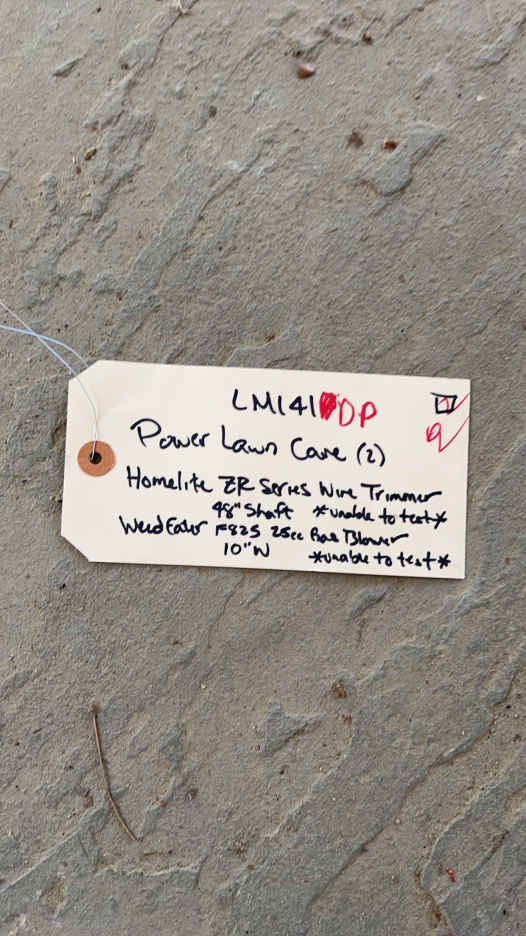 LM141 DP
Power Lawn Care (2)
Homelite ZR Series Wire Trimmer
48" Shaft *unable to test*
Weed Eater 25cc Blower
10" W *unable to test*